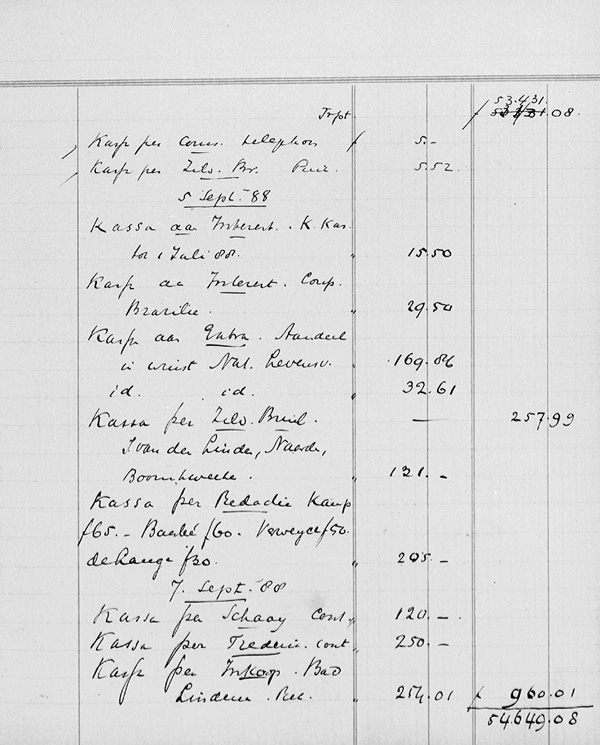 53.431.
Trpt. f 53.431.08.
Kasse per Cour. telephoon f 5.-
Kasse per Zilv. Br. 5.52.
5 Sept. '88
Kassa aan Interest. K. Kas.
tot 1 Juli 88. " 15.50
Kasse aan Interest. Coup.
Brazilie. " 29.50
Kasse aan Extra. Aandeel
in winst Nat. Levensv. " 169.86
id. id. " 32.61
Kassa per Zilv. Bruil. — 257.99
J van der Linden, Naarden,
Boomkweeke. " 121.-
Kassa per Redactie Kamp
f65.- Baarbé f60.- Verweyde f50.
de Lange f30. " 205.-
7. Sept. 88
Kassa per Schaay Cont. " 120.-
Kassa per Frederic. cont " 250.-
Kasse per Inkoop. Bad
Lindene. Rec. " 254.01 f 960.01
54.649.08